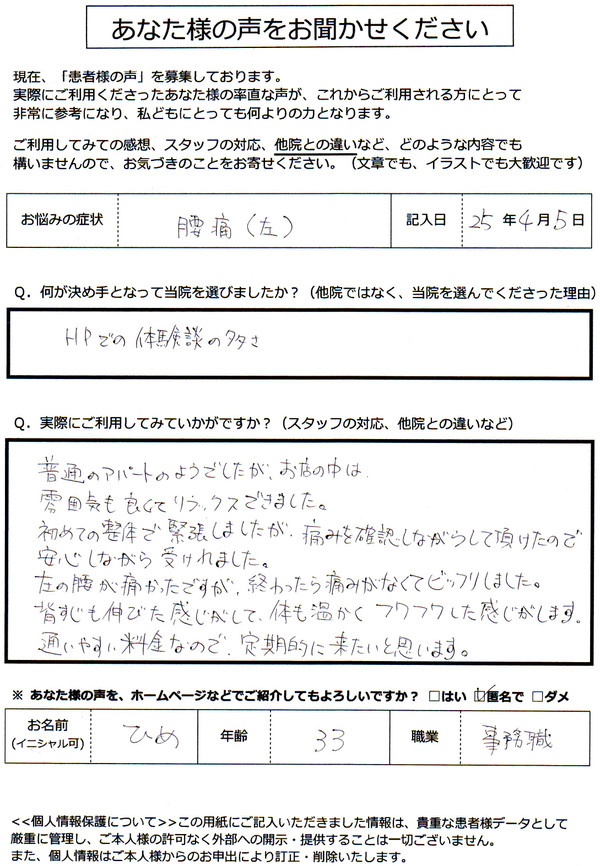 あなた様の声をお聞かせください
現在、「患者様の声」を募集しております。
実際にご利用くださったあなた様の率直な声が、これからご利用される方にとって
非常に参考になり、私どもにとっても何よりの力となります。
ご利用してみての感想、スタッフの対応、他院との違いなど、どのような内容でも
構いませんので、お気づきのことをお寄せください。（文章でも、イラストでも大歓迎です）
お悩みの症状 腰痛（左） 記入日 25年4月5日
Q．何が決め手となって当院を選びましたか？（他院ではなく、当院を選んでくださった理由）
HPでの体験談の多さ
Q．実際にご利用してみていかがですか？（スタッフの対応、他院との違いなど）
普通のアパートのようでしたが、お店の中は、
雰囲気も良くてリラックスできました。
初めての整体で緊張しましたが、痛みを確認しながらして頂けたので
安心しながら受けれました。
左の腰が痛かったですが、終わったら痛みがなくてビックリしました。
背すじも伸びた感じがして、体も温かくフワフワした感じがします。
通いやすい料金なので、定期的に来たいと思います。
※ あなた様の声を、ホームページなどでご紹介してもよろしいですか？ □はい ☑匿名で □ダメ
お名前 ひめ 年齢 33 職業 事務職
（イニシャル可）
<<個人情報保護について>>この用紙にご記入いただきました情報は、貴重な患者様データとして
厳重に管理し、ご本人様の許可なく外部への開示・提供することは一切ございません。
また、個人情報はご本人様からのお申出により訂正・削除いたします。